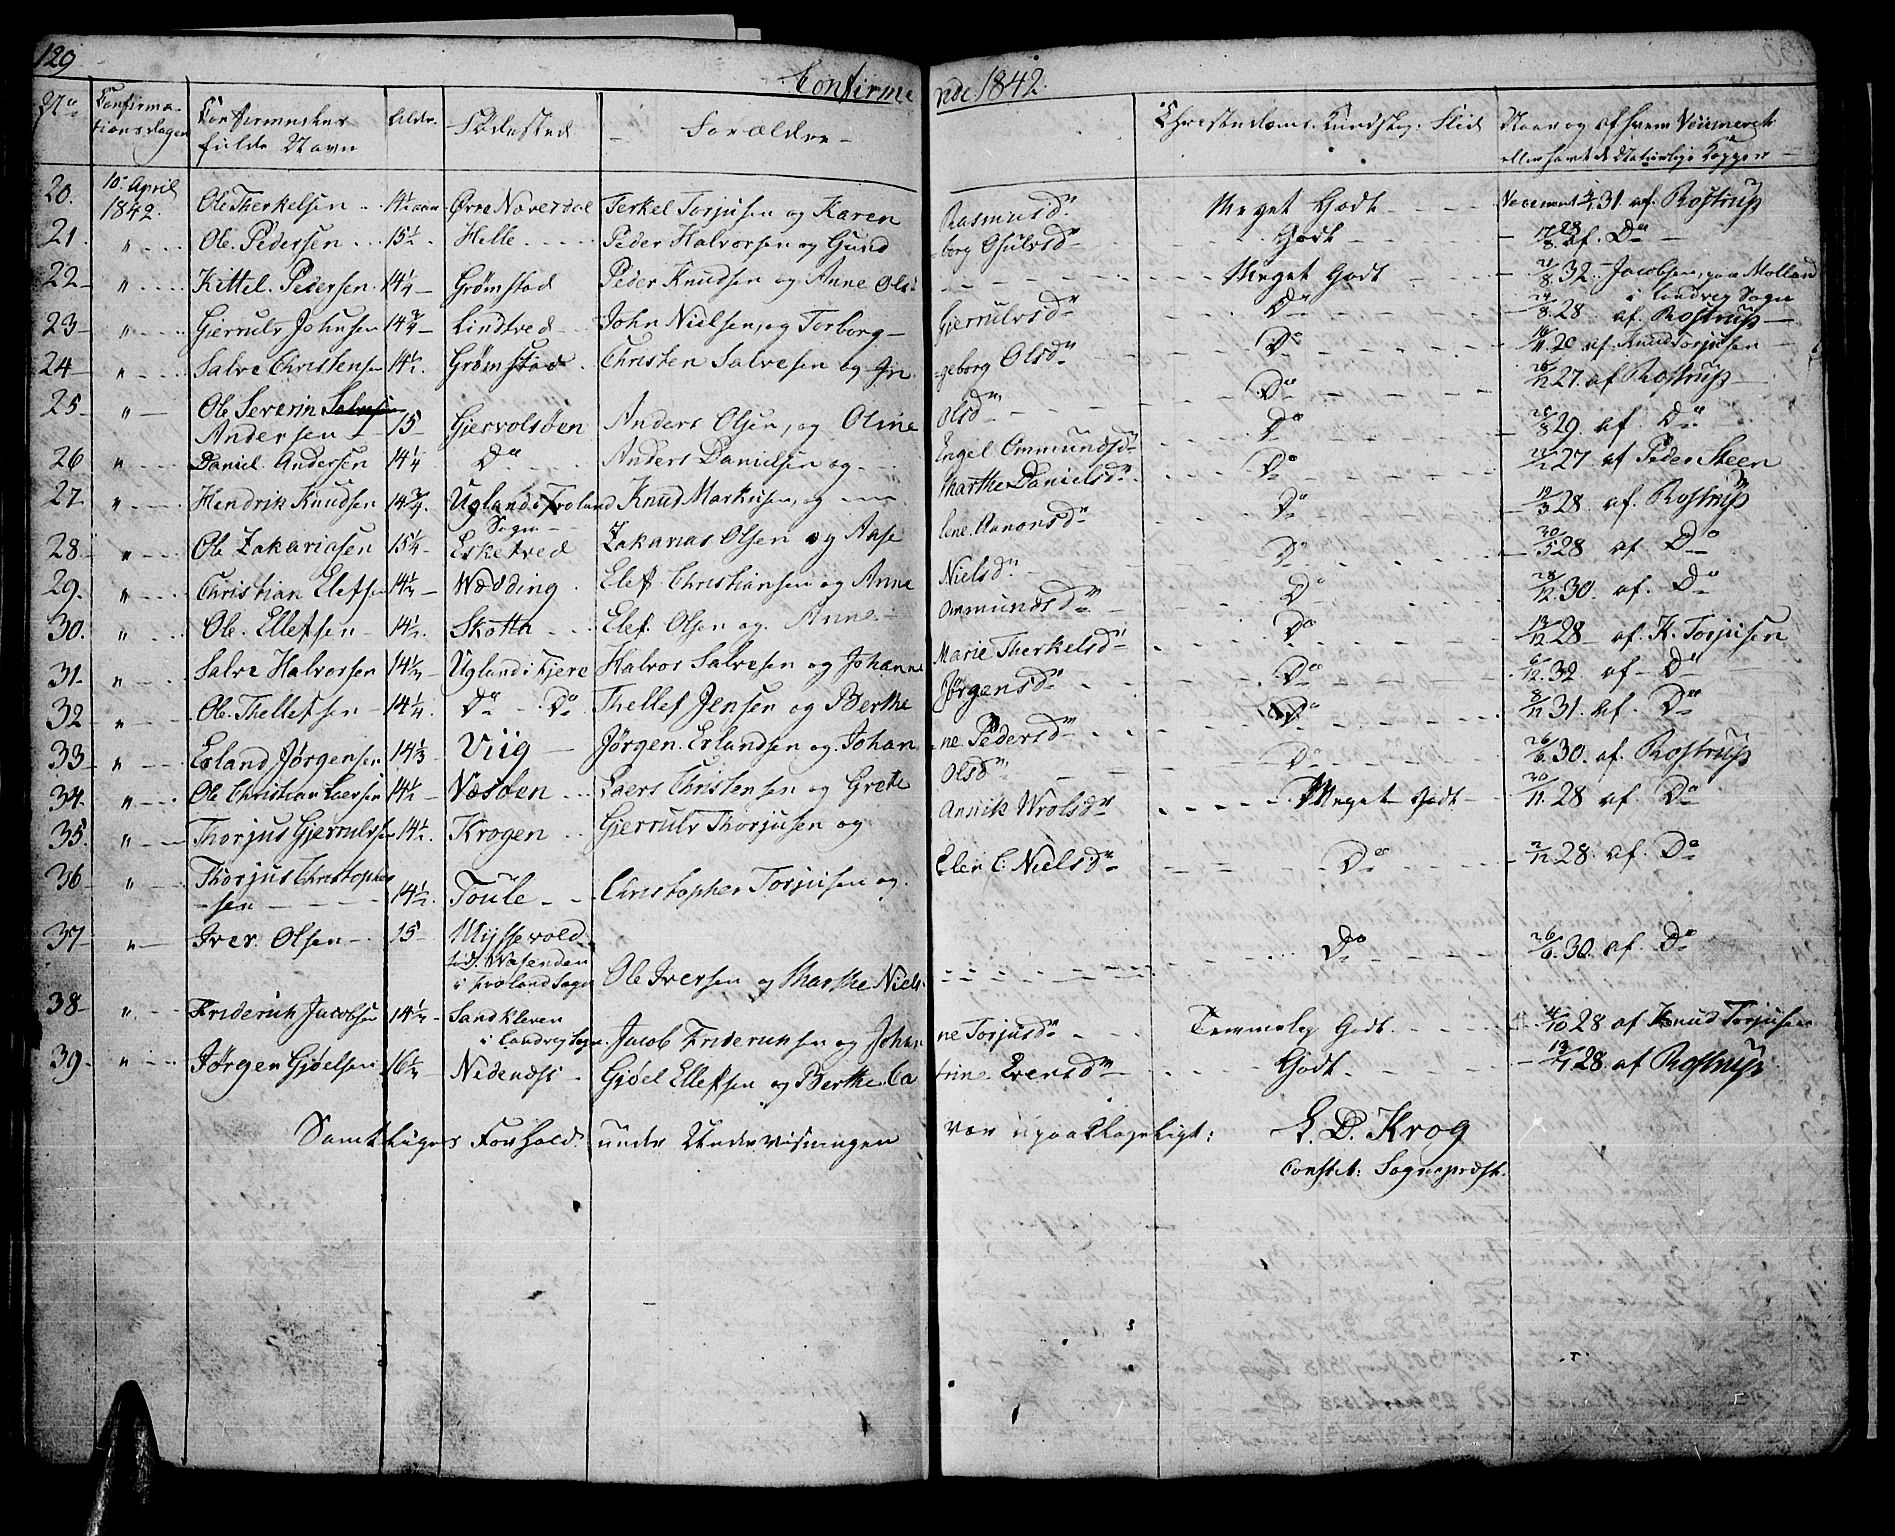 129
Confirmende 1842.
No Confirmationsdagen Confirmandens fulde Navn Alder Fødested Forældre Christendoms Kundskab: Flid Naar og af hvem Vaccineret eller havt de Naturlige Kopper
20. 10de April 1842. Ole Therkelsen 14½ aar Øvre Næverdal Terkel Torjusen og Karen Rasmusd. Meget Godt Vaccineret 31. af. Rostrup
21 " Ole. Pedersen 15½. Helle Peder Halvorsen og Gundborg Osulvsd. Godt 17/8 28 af. Do
22 " Kittel. Pedersen. 14¼ Grømstad Peder Knudsen og Anne Olsd Meget Godt 21/8 32. Jacobsen, paa Molland i Landvig Sogn
23 " Gjerrulv Johnsen 14¾ Lindtved John Nielsen, og Torborg Gjerrulvsd. Do 8. 28. af Rostrup
24 " Salve Christensen 14½. Grømstad Christen Salvesen og Ingeborg Olsd. Do 20 af. Knud Torjusen
25 " Ole Severin Salvesen Andersen 15 Gjervolsøen Anders Olsen, og Oline Olsd. Do 26/12 27. af Rostrup
26 " Daniel. Andersen 14¼ Do Anders Danielsen og Engel Ommundsd. Do 8 29. af. Do
27. " Hendrik Knudsen 14¾. Ugland i Froland Sogn Knud Markusen, og Marthe Danielsd. Do 27 af Peder Steen
28 " Ole Zakariasen 15¼ Esketved Zakarias Olsen og Aase lene. Aanonsd. Do 19/3 28 af. Rostrup
29. " Christian Elefsen Wædding Elef Christiansen og Anne Nielsd. Do 30/5 28 af. Do
30. " Ole. Ellefsen 14½. Skotta Elef. Olsen og. Anne. Ommundsd. Do 28/12. 30. af. Do
31. " Salve Halvorsen Ugland i Fjere Halvor Salvesen og Johanne Marie Therkelsd. Do 13/12 28 af. K. Torjusen
32 " Ole. Thellefsen 14¼ Do Do Thellef Jensen og Berthe Jørgensd. Do 6/12. 32 af Do
33 " Erland Jørgensen 14⅓ Viig Jørgen. Erlandsen og. Johanne. Pedersd. Do 8/11 31. af. Do
34. " Ole Christian Laersen 14½ Næsøen Laers Christensen og Grete Olsd. Do 26/6. 30. af. Rostrup
35. " Thorjus Gjerrulvsen 14½. Krogen Gjerrulv Thorjusen og Annik Wrolsd. Meget Godt 30/11. 28 af. Do
36 " Thorjus Christophersen 14½. Toule Christopher Torjusen og. Elen C. Nielsd. Do 2/12 28. af. Do
37 " Iver. Olsen 15 Myssevold Wasenden i Froland Sogn Ole Iversen og Marthe Niels. Do 26/6. 30. af. Do
38 " Friderik Jacobsen Sandkleven i Landvig Sogn. Jacob Frideriksen og Johanne Torjusd. Temmelig Godt. 4/10 28 af Knud Torjusen
39 " Jørgen Gjøelsen Nedenæs Gjøel Ellefsen og Berthe Catrine. Evensd. Godt. 28. af Rostrup
Samtliges Forhold under Undervisningen var upaaklageligt: E. D. Krog
Constit: Sognepræst.